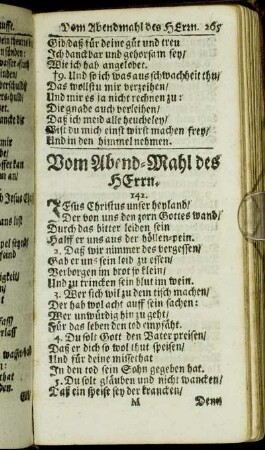 Vom Abendmahl des HErrn. 265
Gib daß für deine güt und treu
Jch danckbar und gehorsam sey/
Wie ich hab angelobet.
†9. Und so ich was aus schwachheit thu/
Das wollstu mir verzeihen/
Und mir es ja nicht rechnen zu:
Die gnade auch verleihen/
Daß ich meid alle heucheley/
Bist du mich einst wirst machen frey/
Und in den himmel nehmen.
Vom Abend-Mahl des
HErrn.
142.
JEsus Christus unser heyland/
Der von uns den zorn Gottes wand/
Durch das bitter leiden sein
Halff er uns aus der höllen-pein.
2. Daß wir nimmer des vergessen/
Gab er uns sein leib zu essen/
Verborgen im brot so klein/
Und zu trincken sein blut im wein.
3. Wer sich wil zu dem tisch machen/
Der hab wol acht auff sein sachen:
Wer unwürdig hin zu geht/
Für das leben den tod empfäht.
4. Du solt Gott den Vater preisen/
Daß er dich so wol thut speisen/
Und für deine missethat
Jn den tod sein Sohn gegeben hat.
5. Du solt gläuben und nicht wancken/
Daß ein speise sey der krancken/
M Denn